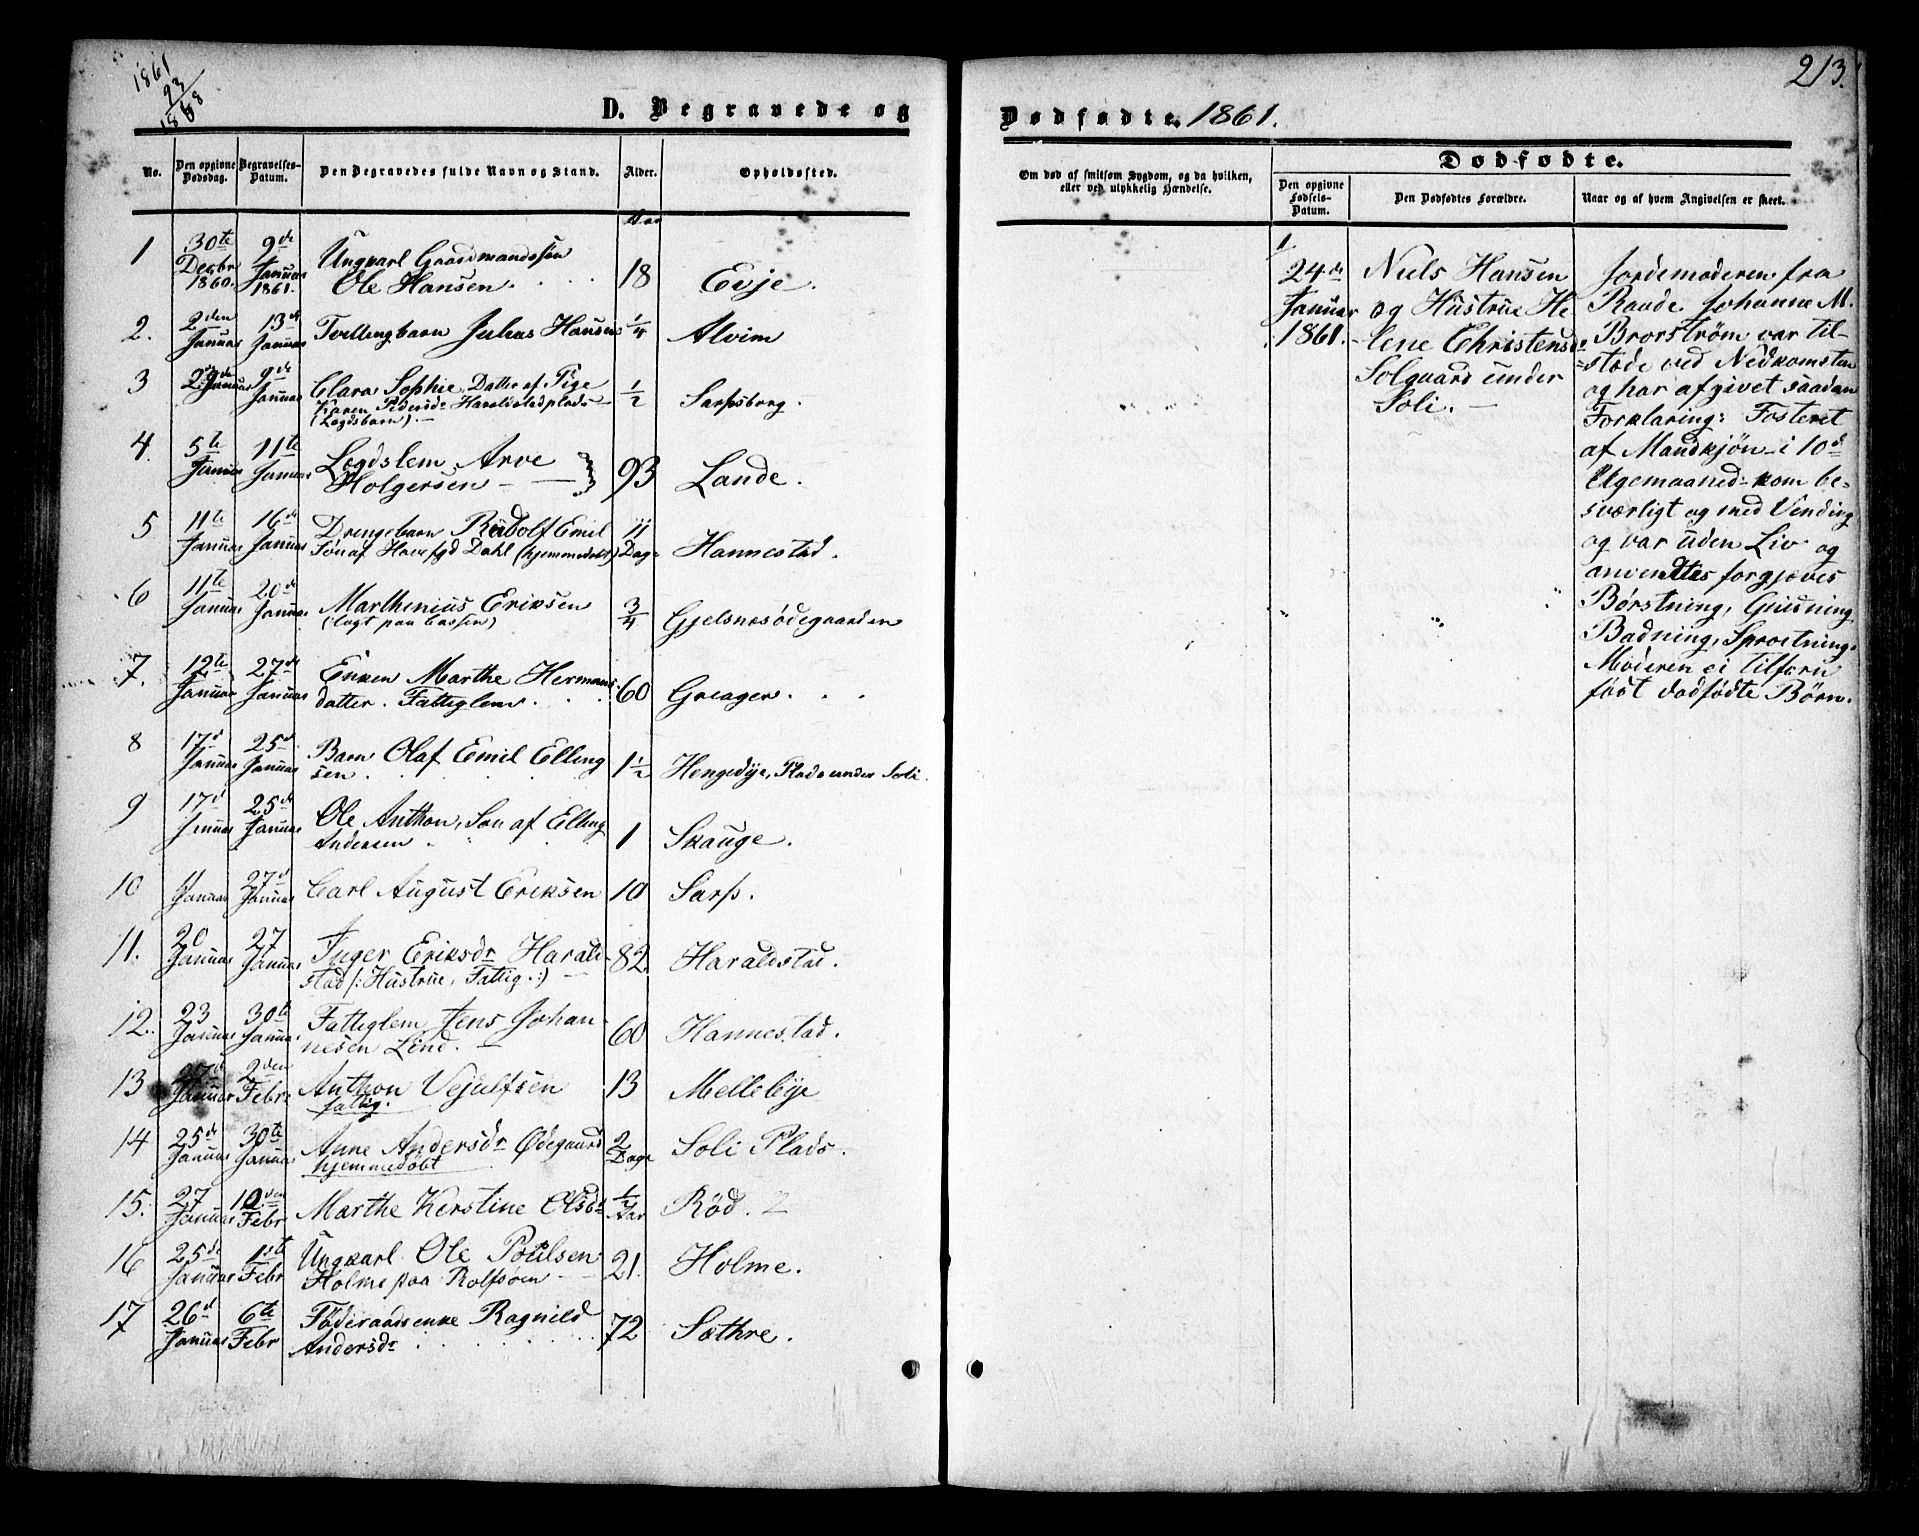 1861
93
1868
213.
D. Begravede og
Dødfødte. 1861.
No.
Den opgivne Dødsdag.
Begravelses-Datum.
Den Begravedes fulde Navn og Stand.
Alder.
Opholdssted.
Om død af smitsom Sygdom, og da hvilken,
eller ved ulykkelig Hændelse.
Dødfødte.
Den opgivne Fødsels-Datum.
Den Dødfødtes Forældre.
Naar og af hvem Angivelsen er skeet.
Aar
1 30te Decbr 1860. 9de Januar 1861. Ungkarl Gaardmandssøn
Ole Hansen. 18 Evje.
2. 2den Januar 13de Januar Tvillingbarn Julius Hansen 1/4 Alvim
3 Januar 9de Januar Clara Sophie Datter af Pige
Karen Pedersdr Haraldstadplads
(Lægdsbarn) 1/2 Sarpsborg.
4. 5te Januar 11te Januar Lægdslem Arve
Holgersen 93 Lande.
5 11te Januar 16de Januar Drengebarn Rudolf Emil
Søn af Havefgd Dahl (hjemmedøbt) 11 Dage Hannestad.
6 11te Januar 20de Januar Marthinius Eriksen
(lagt paa Cassen) 3/4 Gjelsnæsødegaarden
7. 12te Januar 27de Januar Enken Marthe Hermans
datter. Fattiglem 60 Greager.
8 17d Januar 25d Januar Barn Olaf Emil Elling
sen. 1 1/2 Hengedye, Plads under Soli.
9 17d Januar 25de Januar Ole Anthon, Søn af Elling
Andersen 1 Skauge.
10 11 Januar 27d Januar Carl August Eriksen 10 Sarp.
11. 20 Januar 27 Januar Inger Eriksdr Harald-
stad (: Hustrue, Fattig. :) 82 Haraldstad.
12. 23 Januar 30te Januar Fattiglem Jens Johan-
nesen Lind. 60 Hannestad.
13 27d Januar 2den Febr. Anthon Vejulfsen
fattig. 13 Mellebye
14 25de Januar 30te Januar Anne Andersdr Ødegaard
hjemmedøbt 2 Dage Soli Plads.
15. 27 Januar 10den Febr Marthe Kerstine Olsdr 1/2 Aar Rød.
16 25de Januar 1ste Febr Ungkarl Ole Poulsen
Holme paa Rolfsøen 21. Holme.
17 26d Januar 6te Febr Føderaadsenke Ragnild
Andersdr 72 Sæthre.
1.
24de Januar 1861.
Niels Hansen
og Hustrue He
lene Christensdr
Solgaard under
Soli.
Jordemoderen fra
Raade Johanne M.
Brorstrøm var til-
stæde ved Nedkomsten
og har afgivet saadan
Forklaring: Fosteret
af Mandkjøn i 10d
Ugemaaned kom be-
sværligt og med Vending
og var uden Liv og
anvendtes forgjæves
Børstning, Gnidning
Badning, Sprøitning.
Moderen ei tilforn
født dødfødte Børn.